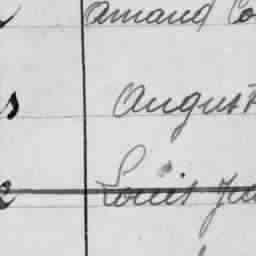 Amand Co
s August
Louis